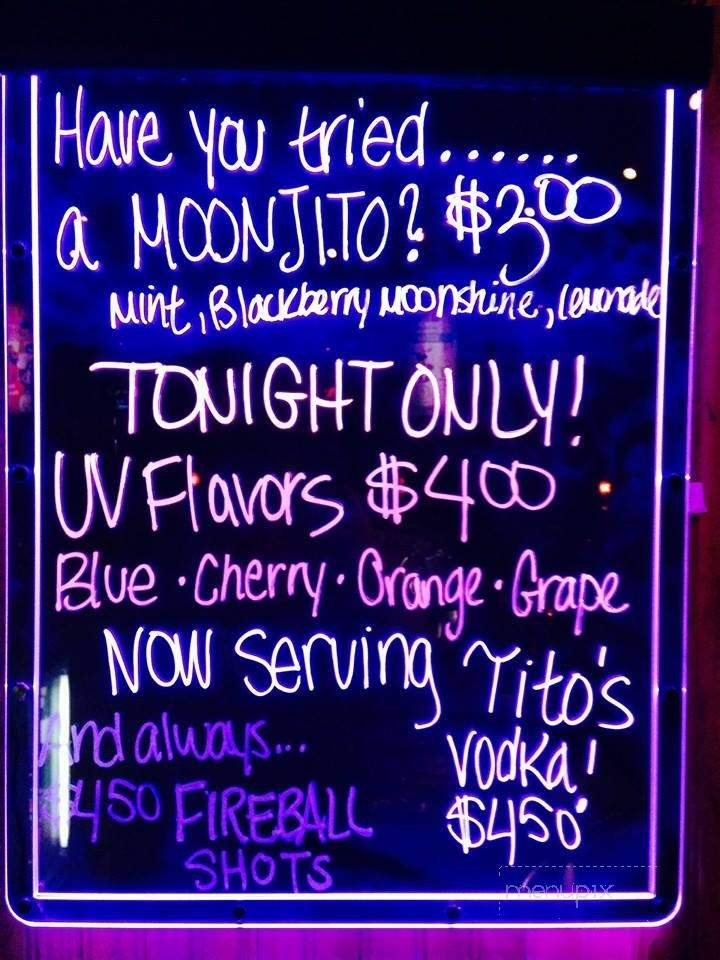 Have you tried......
a MOONJITO? $3.00
Mint, Blackberry Moonshine, lemonade
TONIGHT ONLY!
UV Flavors $400
Blue · Cherry · Orange · Grape
NOW Serving Tito's
Vodka!
$450
And always...
$450 FIREBALL
SHOTS
menupix